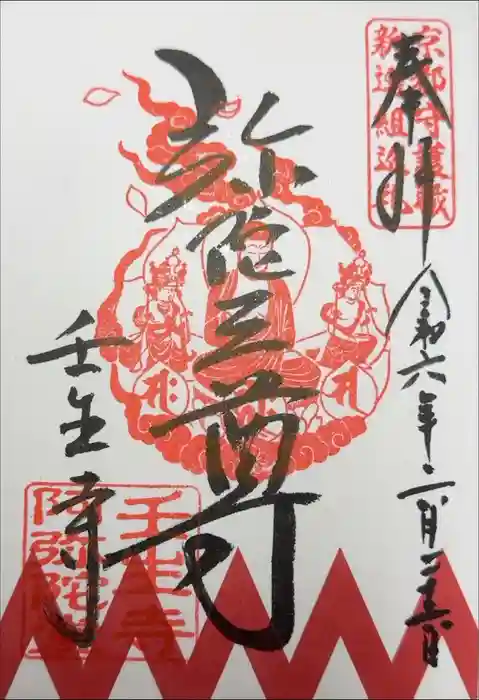 奉拝
京都守護職
新選組
令和六年二月
弥陀三尊
壬生寺
壬生寺
阿弥陀堂